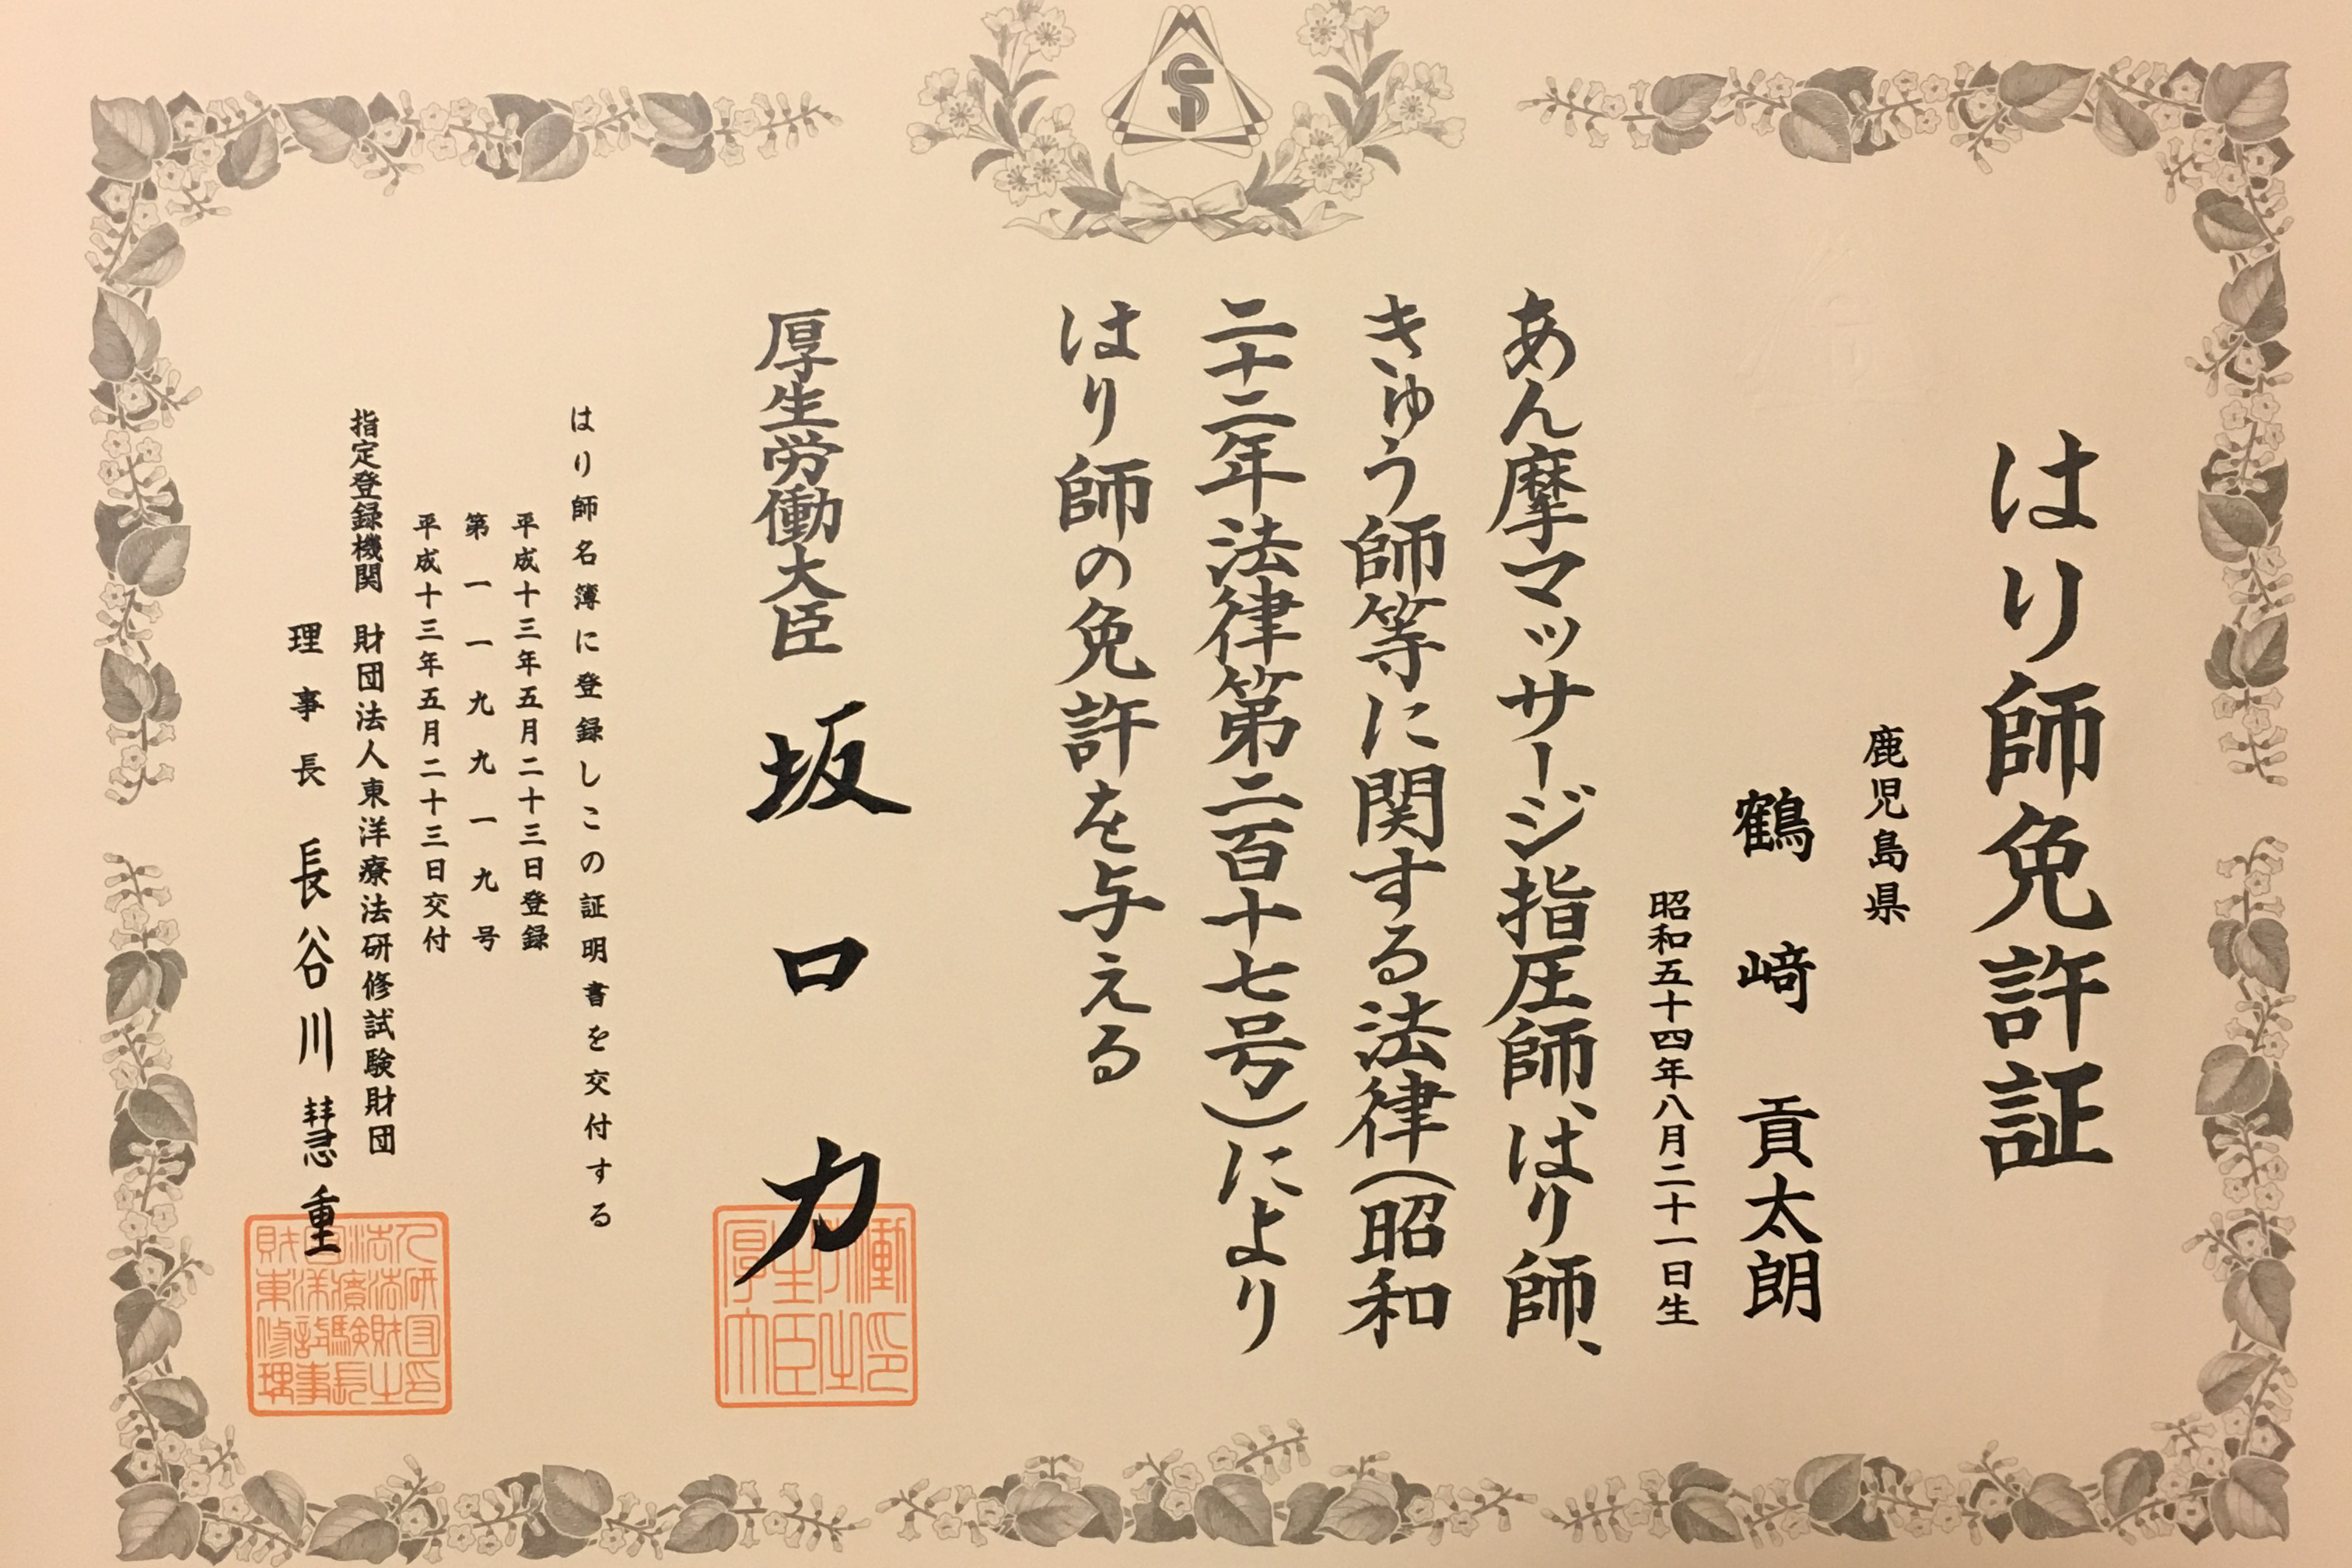 はり師免許証
鹿児島県
鶴﨑貢太朗
昭和五十四年八月二十一日生
あん摩マッサージ指圧師、はり師、
きゅう師等に関する法律(昭和
二十二年法律第二百十七号)により
はり師の免許を与える
厚生労働大臣 坂口力
はり師名簿に登録しこの証明書を交付する
平成十三年五月二十三日登録
第一一九九一九号
平成十三年五月二十三日交付
指定登録機関 財団法人東洋療法研修試験財団
理事長 長谷川慧重